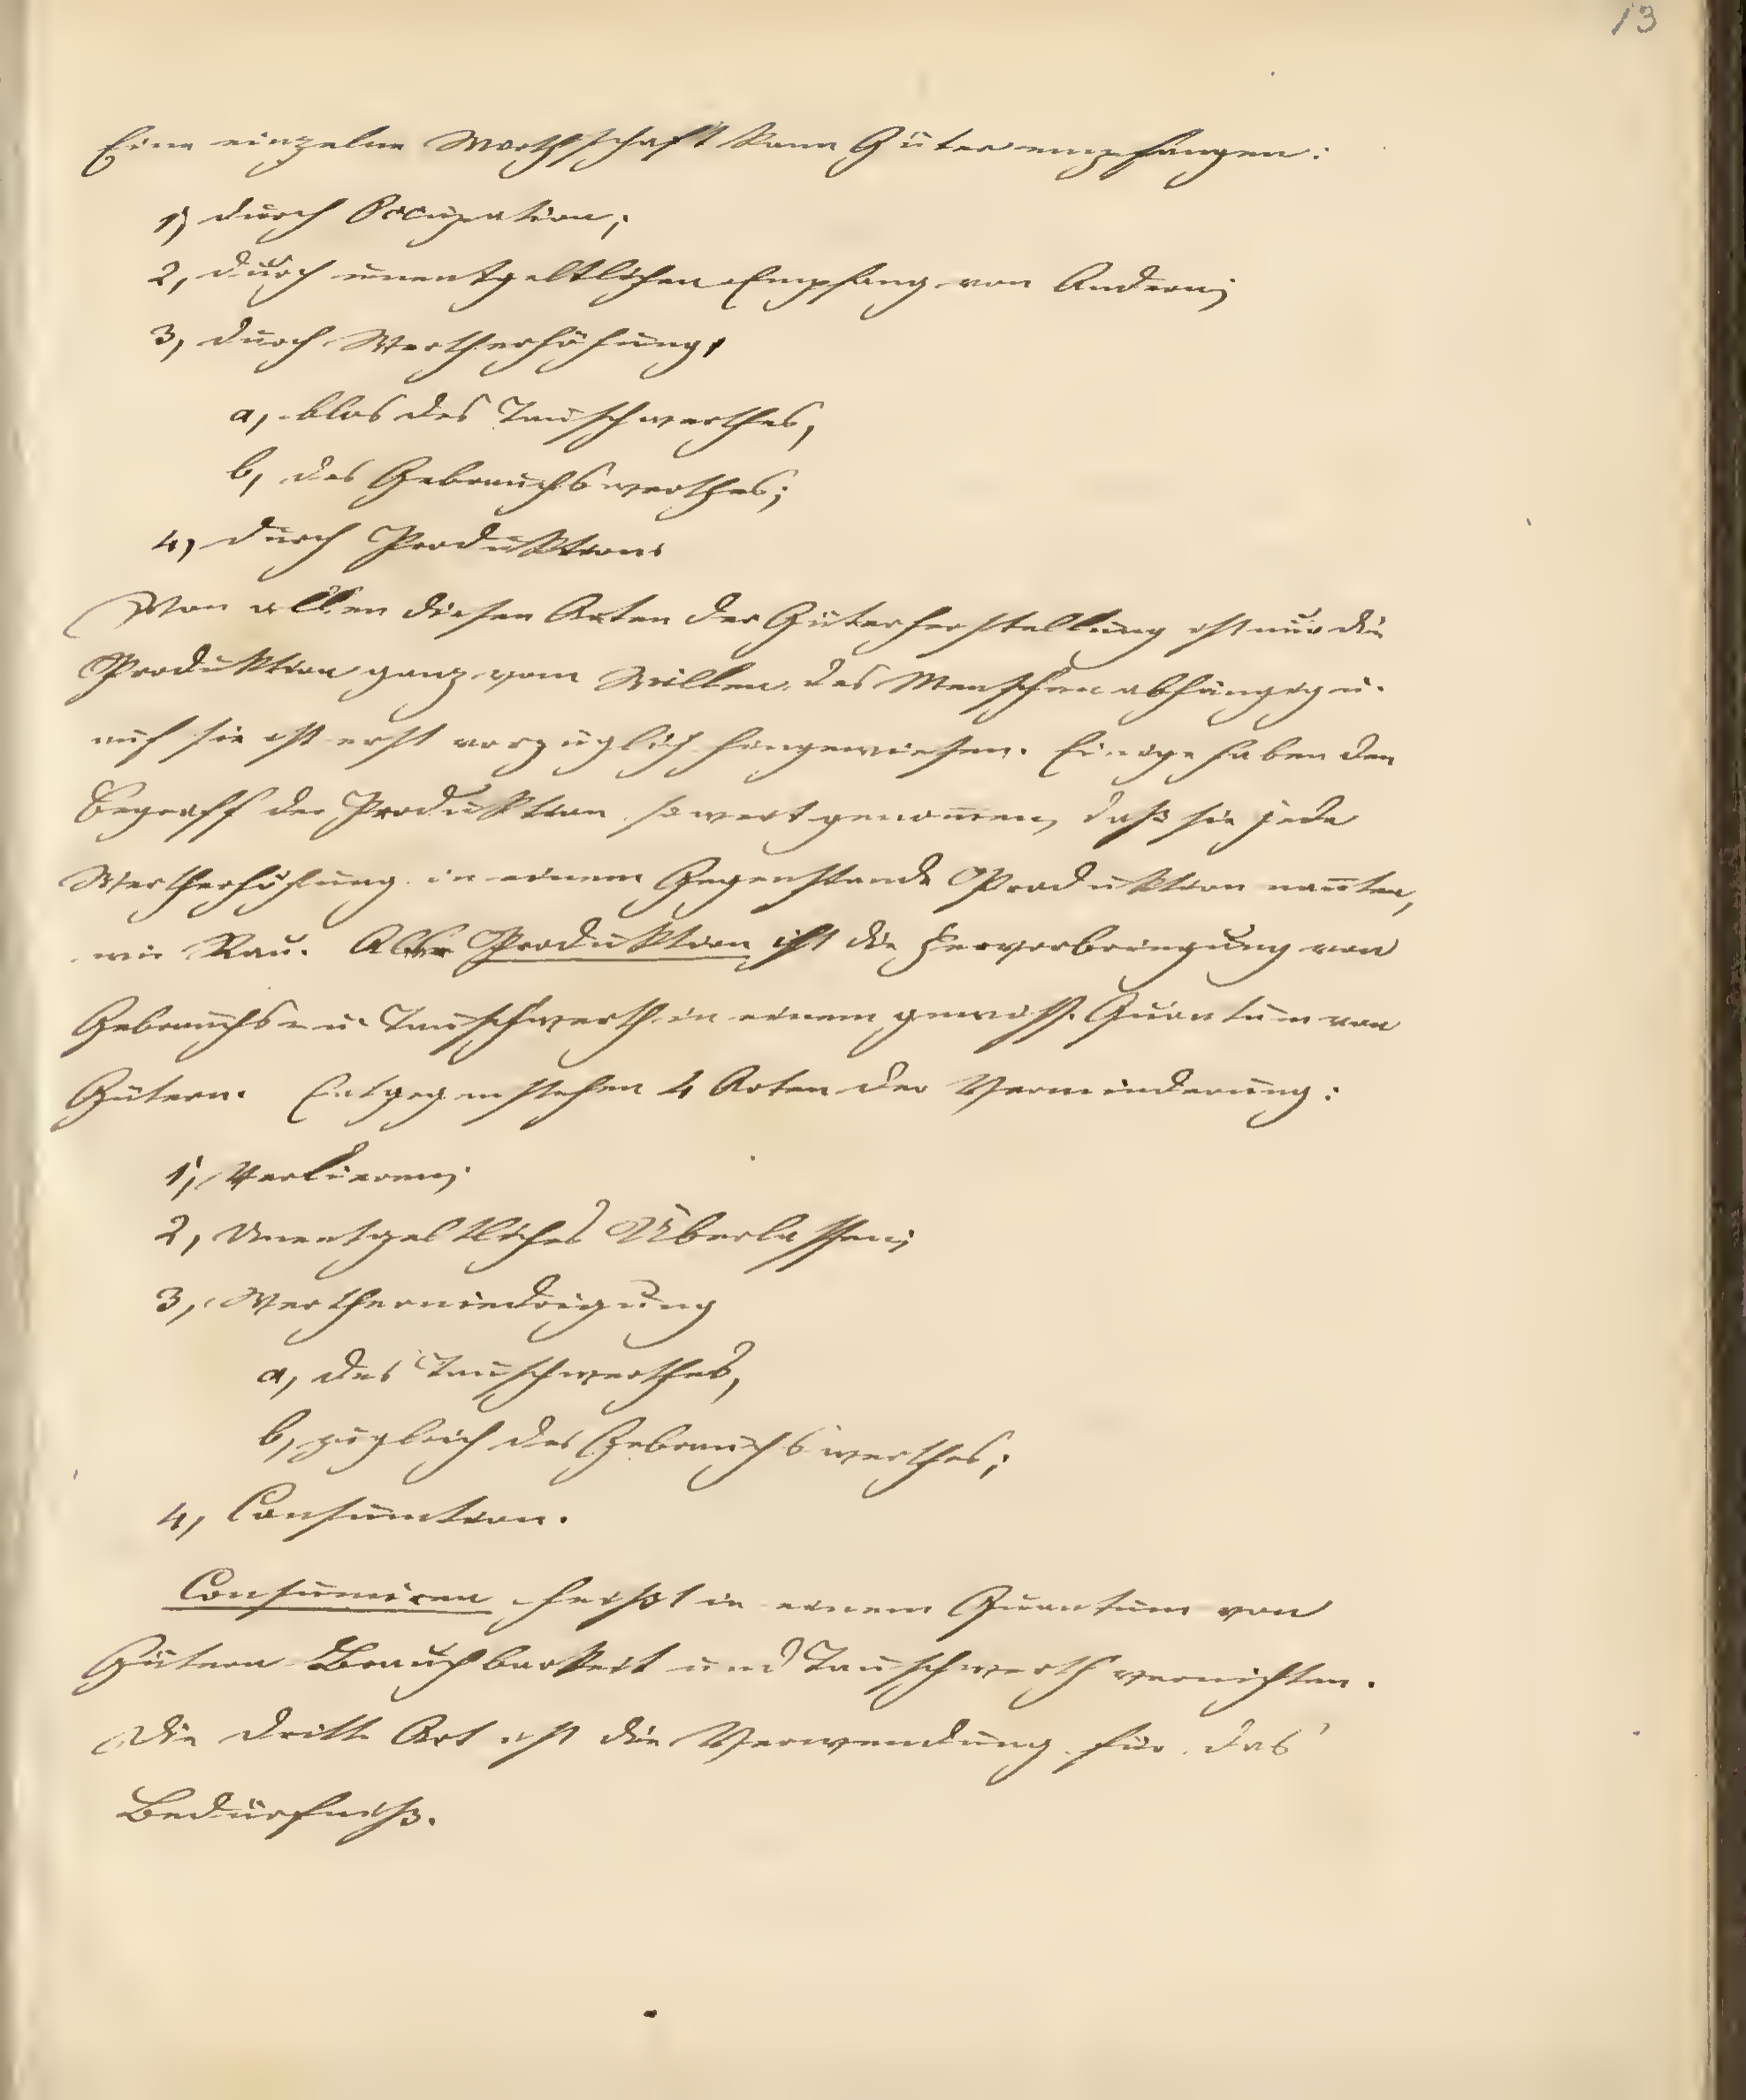 13
Eine einzelne Wirthschaft kann Güter empfangen:
1, durch Occupation;
2, durch unentgeltlichen Empfang von Andern;
3, durch Wertherhöhung,
a, blos des Tauschwerthes,
b, des Gebrauchswerthes;
4, durch Produktion.
Von allen diesen Arten der Güterherstellung ist nur die
Produktion ganz vom Willen des Menschen abhängig u.
auf sie ist erst vorzüglich hingewiesen. Einige haben den
Begriff der Produktion so weit genom̅en, daß sie jede
Wertherhöhung in einem Gegenstande Produktion nan̅ten,
wie Rau. Aber Produktion ist die Hervorbringung von
Gebrauchs- u. Tauschwerth in einem gewiss. Quantum von
Gütern. Entgegenstehen 4 Arten der Verminderung:
1, Verlieren;
2, Unentgeltliches Überlassen;
3, Értherniedrigung
a, des Tauschwerthes,
b, zugleich des Gebrauchswerthes;
4, Consumtion.
Consumiren heißt in einem Quantum von
Gütern Brauchbarkeit und Tauschwerth vernichten.
Die dritte Art ist die Verwendung für das
Bedürfniß.